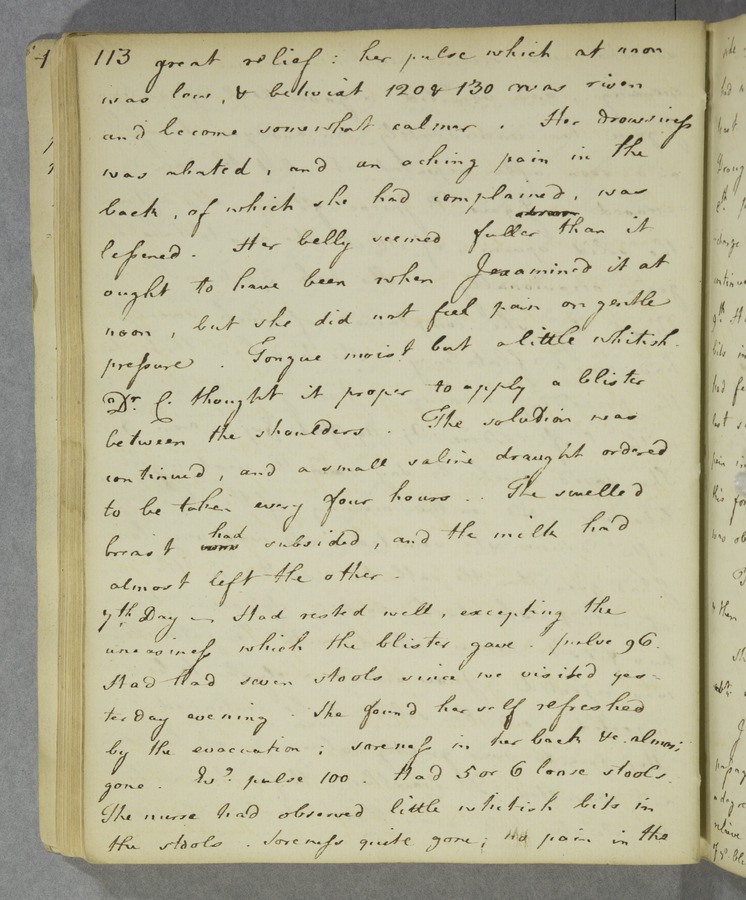 113 great relief : her pulse which at noon
was low, & betwixt 120 & 130 was risen
and become somewhat calmer . Her drowsiness
was abated, and an aching pain in the
back, of which she had complained, was
lessened . Her belly seemed fuller than it
ought to have been when I examined it at
noon, but she did not feel pain on gentle
pressure . Tongue moist but a little whitish.
Dr. C. thought it proper to apply a blister
between the shoulders . The solution was
continued, and a small saline draught ordered
to be taken every four hours . . The swelled
breast had subsided, and the milk had
almost left the other .
7th Day — Had rested well, excepting the
uneasiness which the blister gave . pulse 96.
Had had seven stools since we visited yes-
terday evening . She found herself refreshed
by the evacuation ; soreness in her back &c. almost
gone . Ev? pulse 100 . Had 5 or 6 loose stools.
The nurse had observed little whitish bits in
the stools . Soreness quite gone ; no pain in the